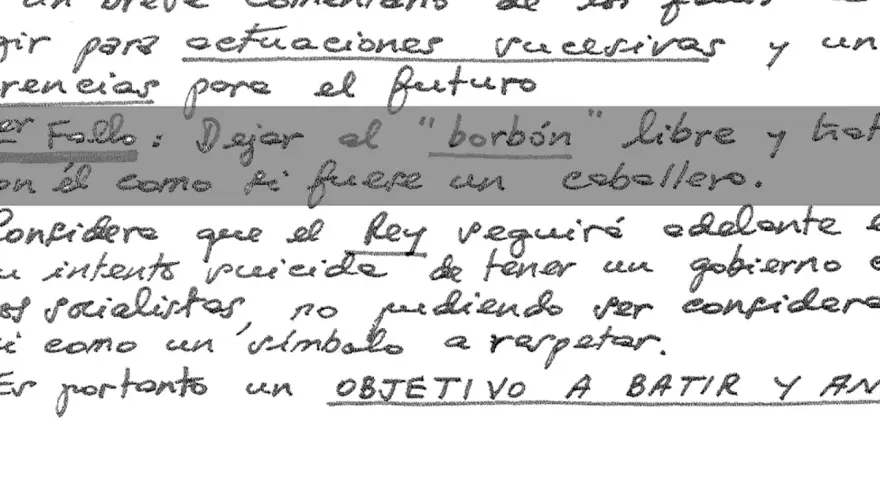 un breve comentario de los fallos
gir para actuaciones sucesivas y un
rencias para el futuro
er Fallo: Dejar al "borbón" libre y trat
on él como si fuese un caballero.
Considera que el Rey seguirá adelante e
u intento suicida de tener un gobierno c
os socialistas, no pudiendo ser considera
si como un símbolo a respetar.
Es portanto un OBJETIVO A BATIR Y AN